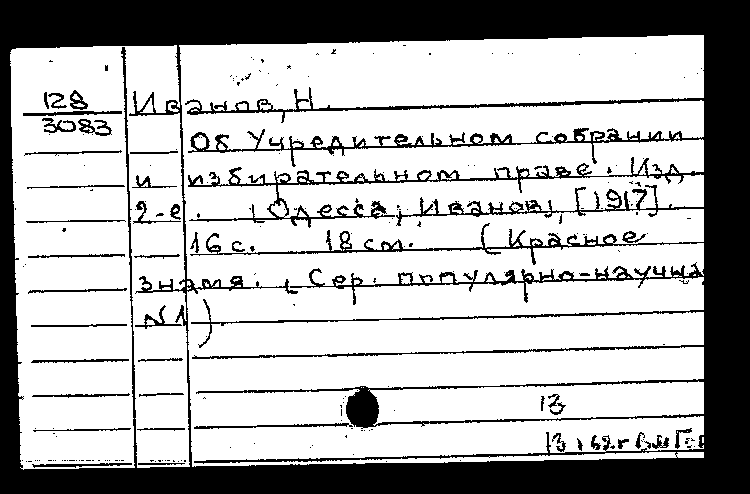 128
3083
Иванов, Н.
Об Учредительном собрании
и избирательном праве. Изд.
2-е. [Одесса, Иванов], [1917].
16 с. 18 см. (Красное
знамя. [Сер. популярно-научная
№1)
13